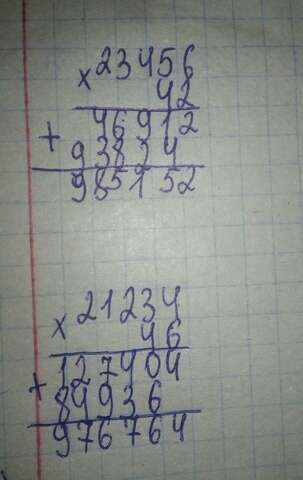 ×23456
42
46912
+
93824
985152
×21234
46
127404
+
84936
976764